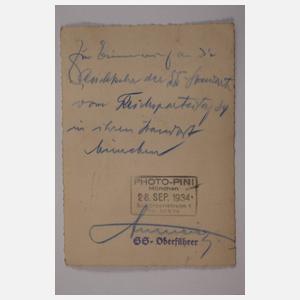 Zur Erinnerung an die
Rückkehr der SS-Standarte
vom Reichsparteitag 34
in ihren Standort
München
PHOTO-PINI
München
28. SEP. 1934
SS-Oberführer